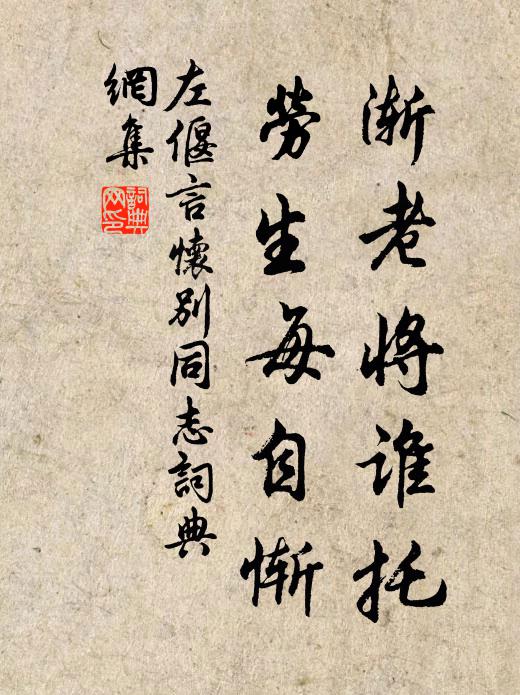 渐老将谁托
劳生每自惭
左偃言懷别同志詞典
網集
詞典
网印